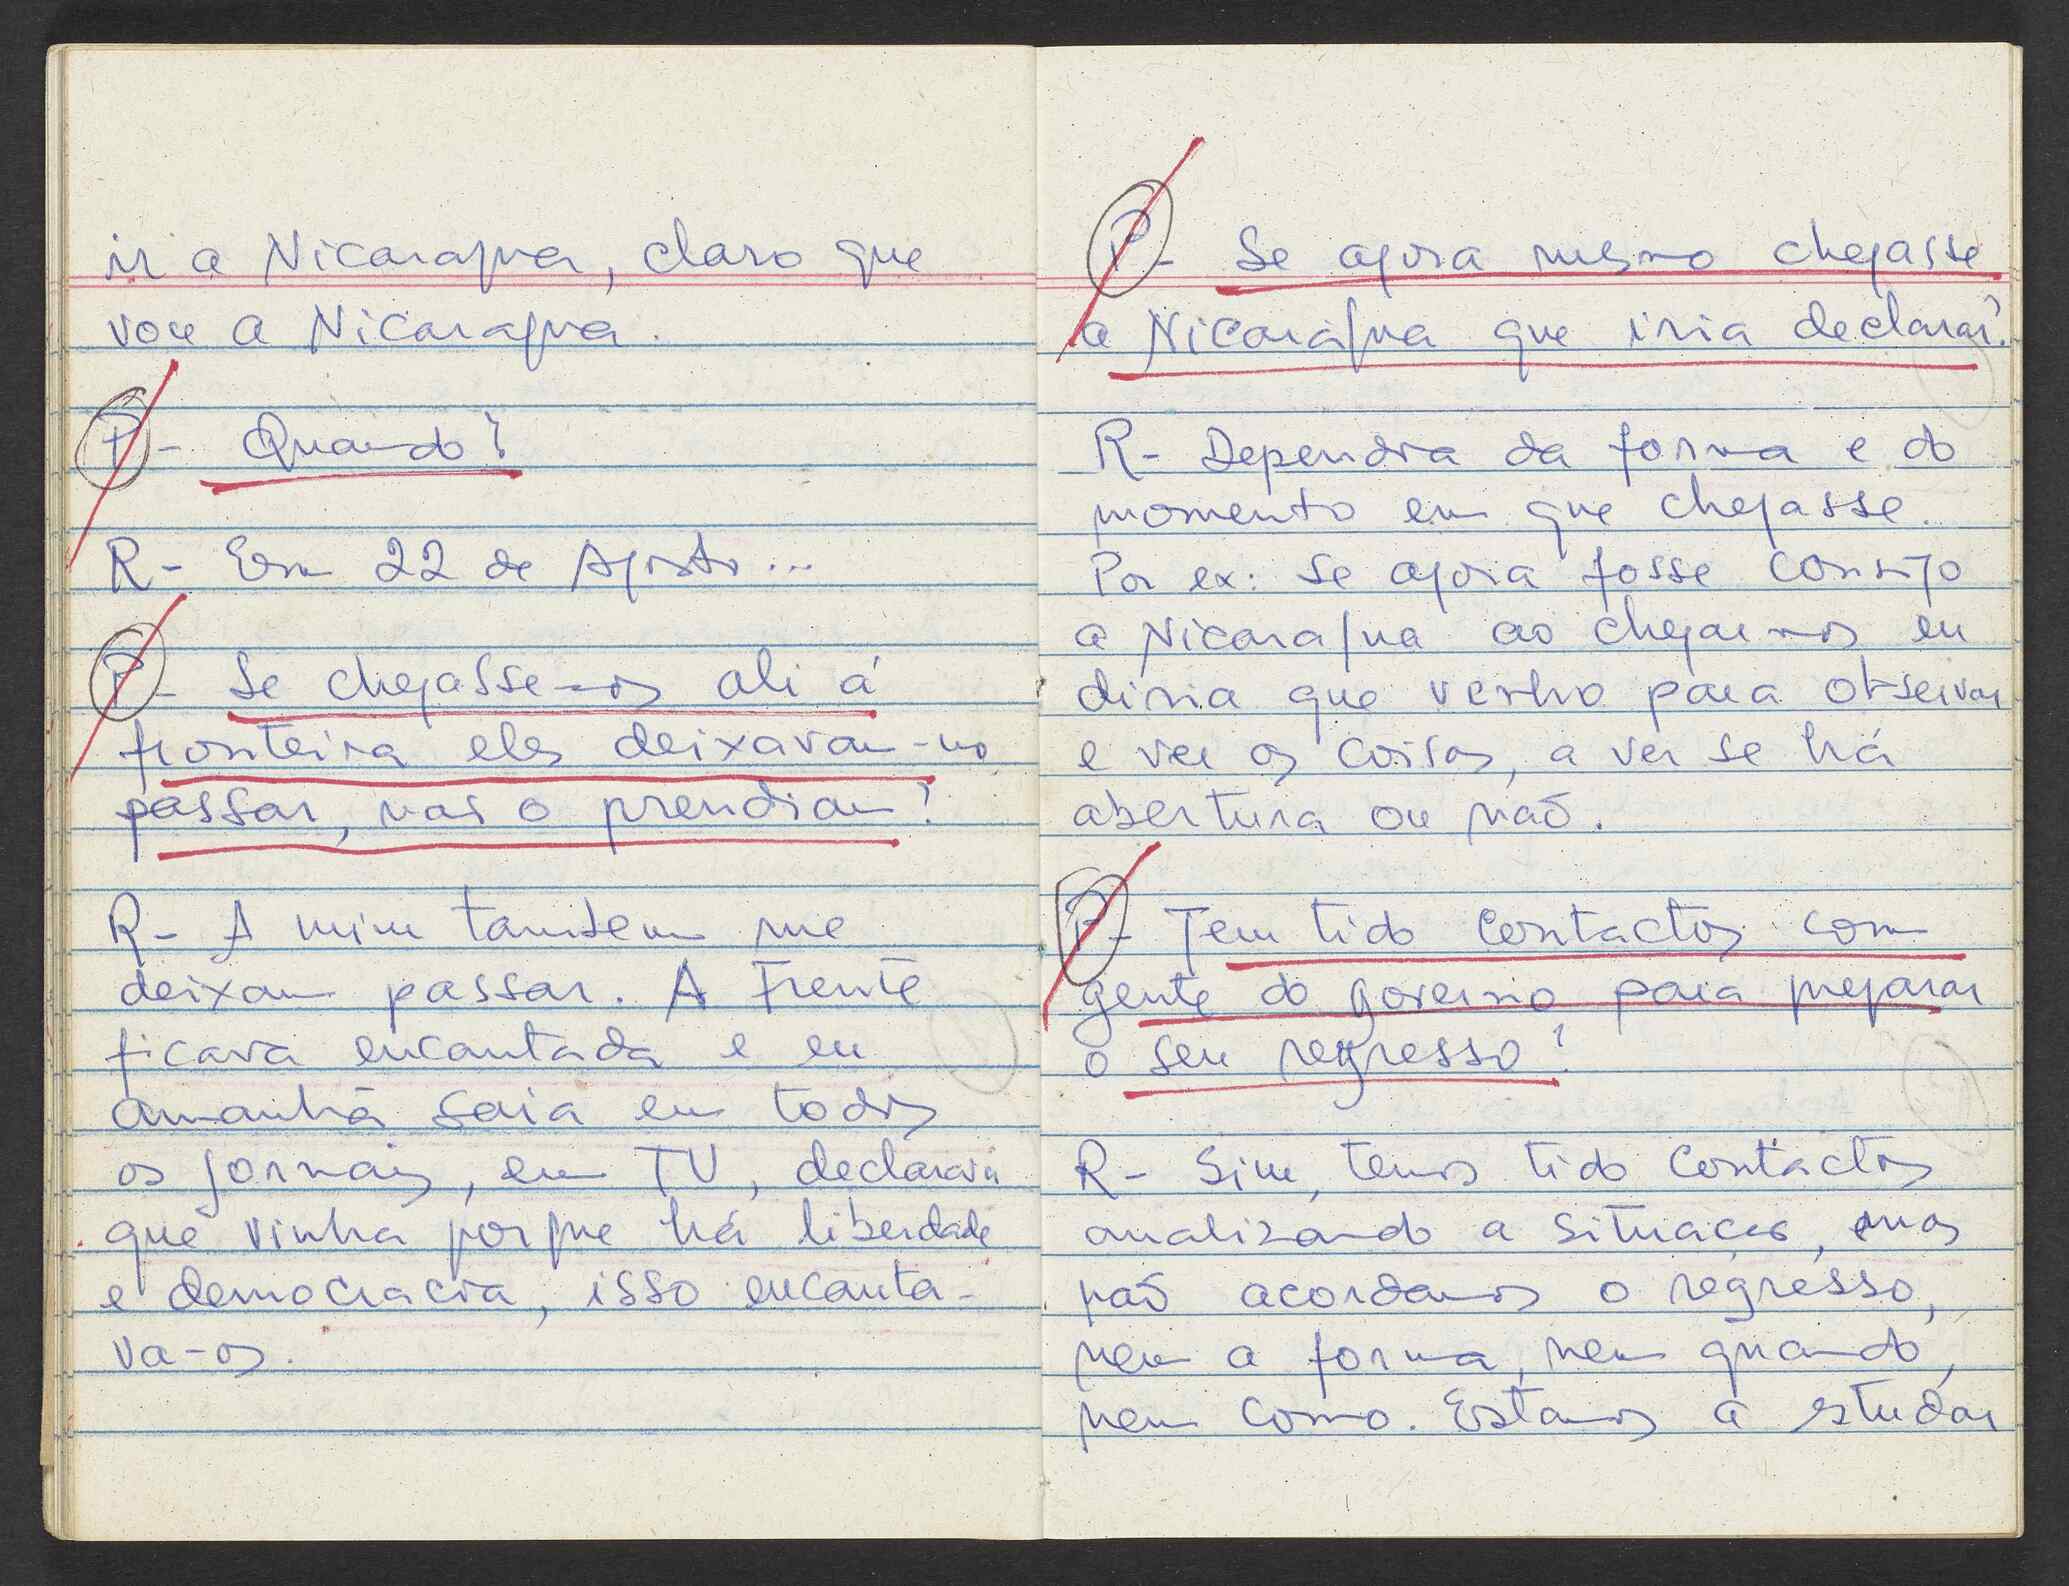 ir a Nicaragua, claro que
vou a Nicaragua.
P- Quando?
R- Em 22 de Agosto...
P- Se chegassemos ali á
fronteira eles deixavam-no
passar, nao o prendiam?
R- A mim tambem me
deixam passar. A Frente
ficava encantada e eu
amanhã saia em todos
os jornais, em TV, declararia
que vinha porque há liberdade
e democracia, isso encanta-
va-os.
P- Se agora mesmo chegasse
a Nicaragua que iria declarar?
R- Dependia da forma e do
momento em que chegasse.
Por ex: se agora fosse consigo
a Nicaragua ao chegarmos eu
diria que venho para observar
e ver as coisas, a ver se há
abertura ou não.
P- Tem tido contactos com
gente do governo para preparar
o seu regresso?
R- Sim, temos tido contactos
analizando a situaçao, mas
não acordamos o regresso,
nem a forma, nem quando,
nem como. Estamos a estudar